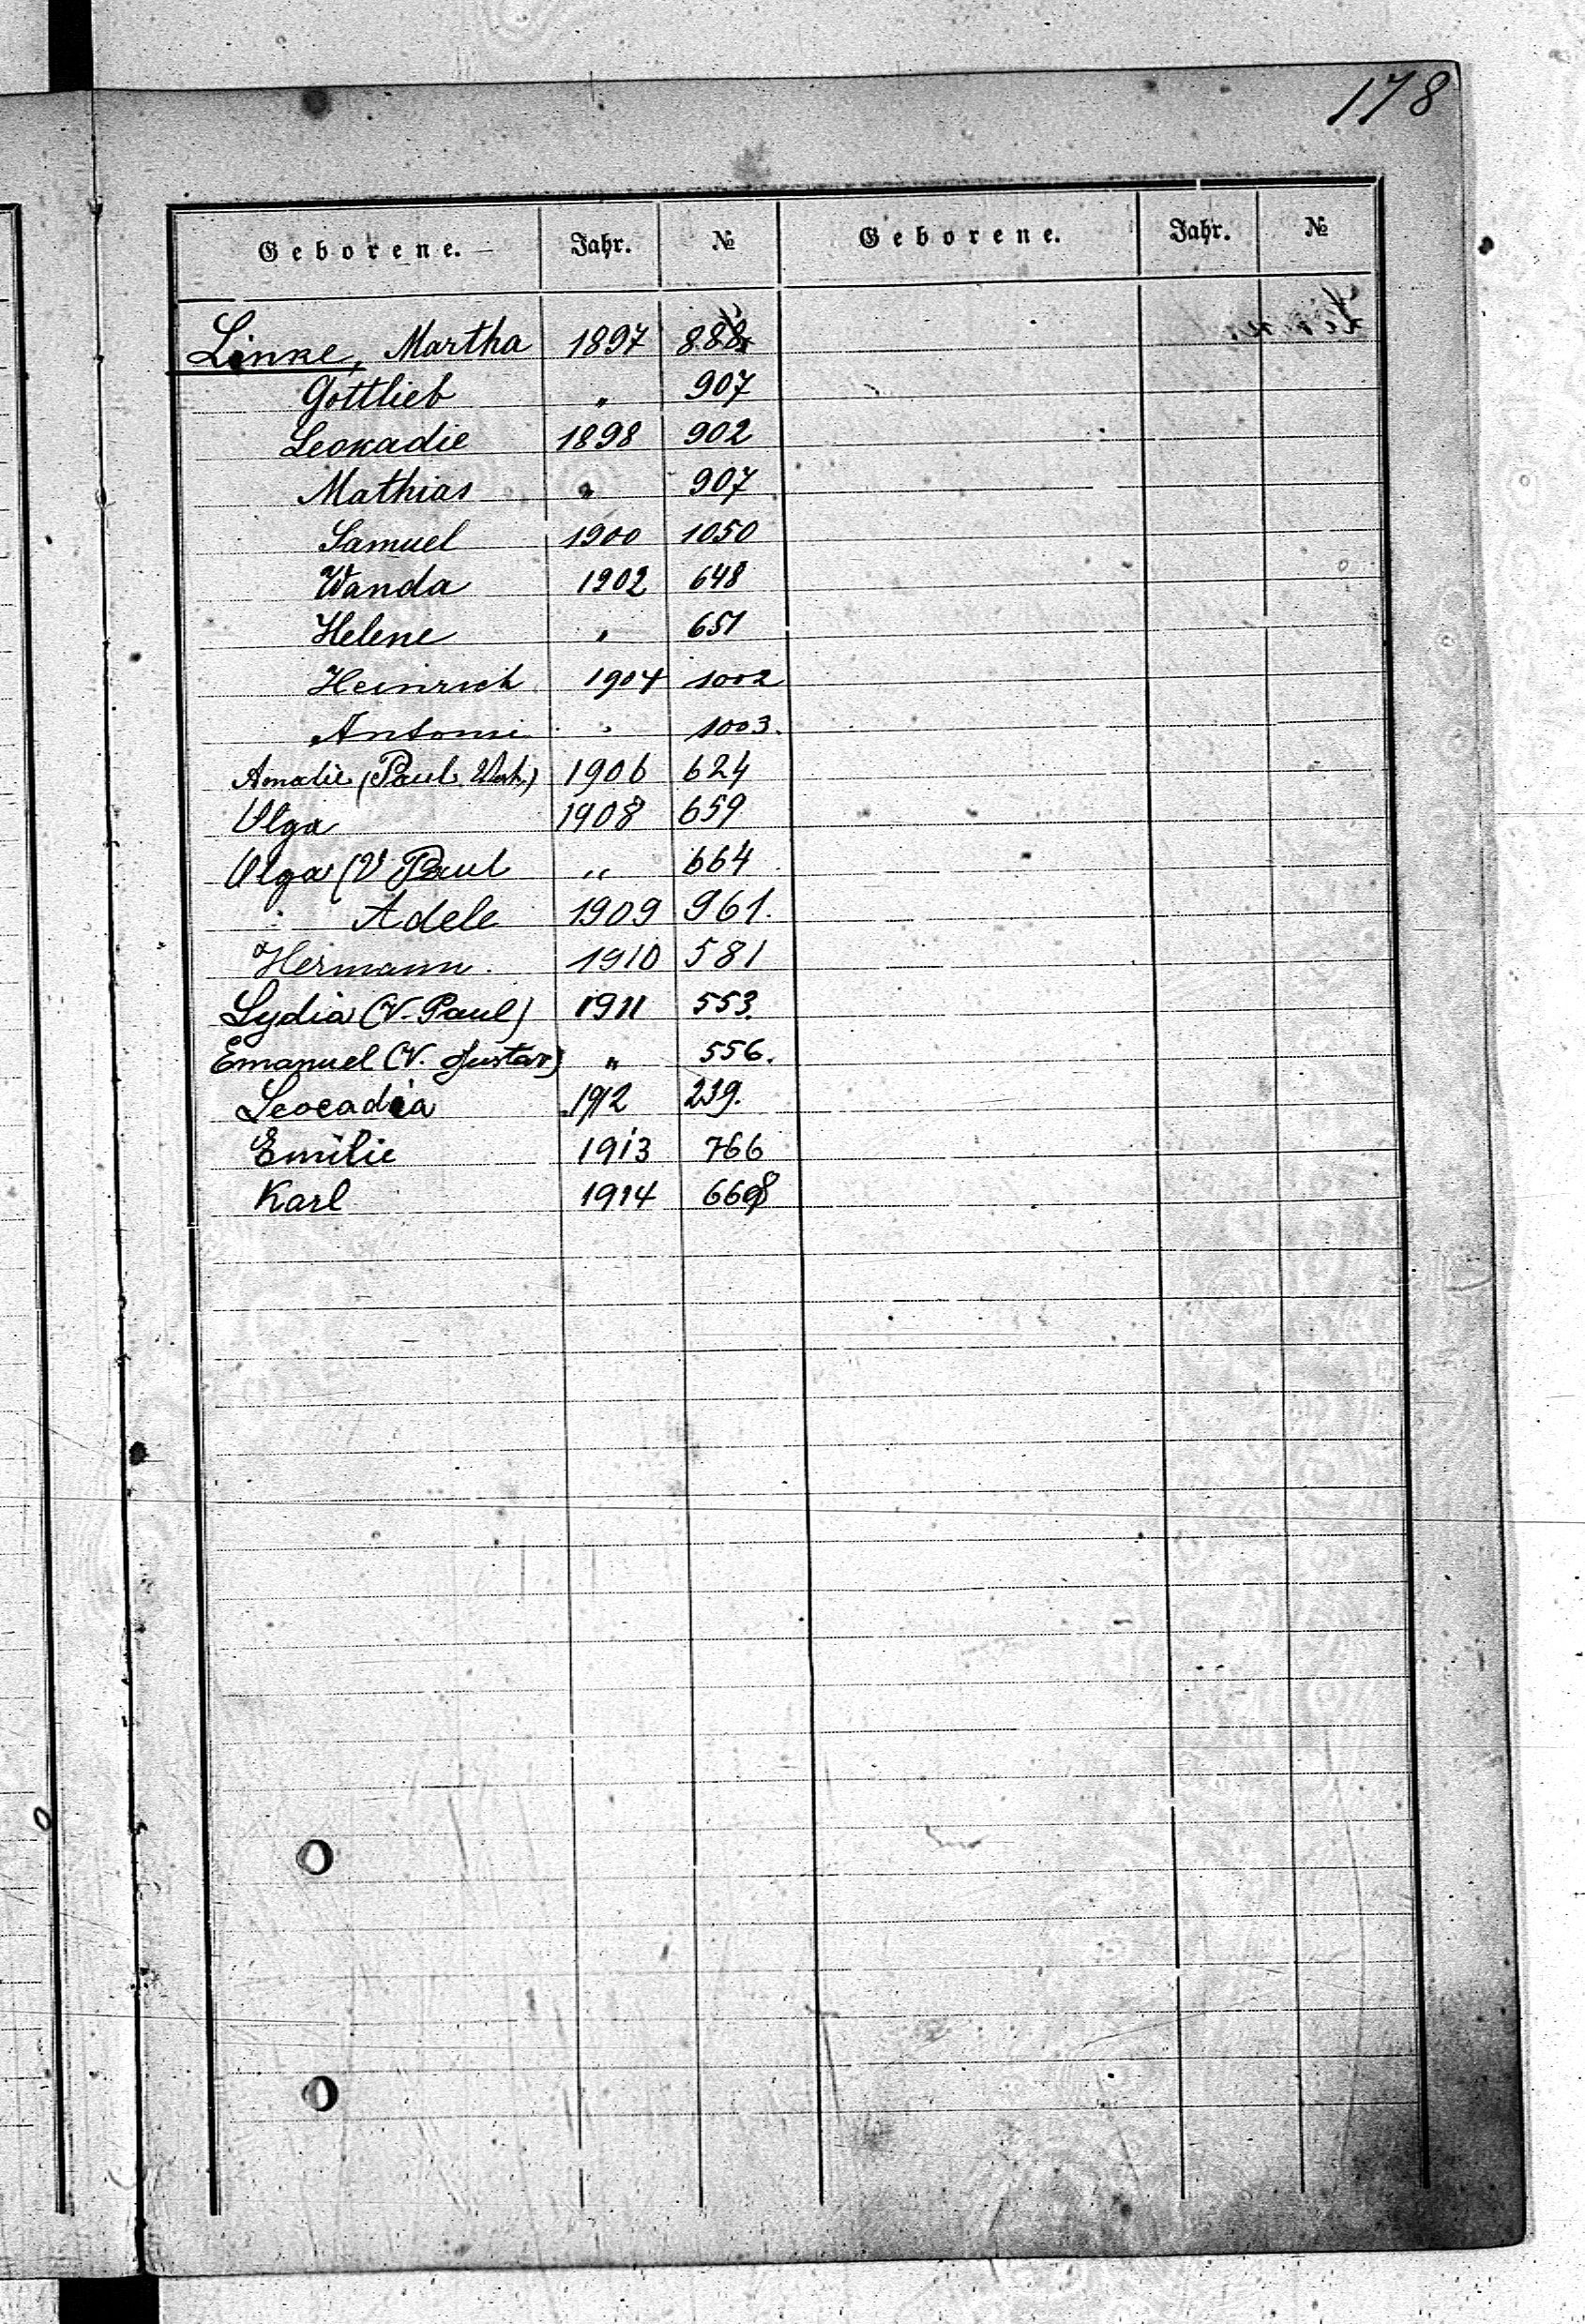 178
Geborene. Jahr. № Geborene. Jahr. №
Linke, Martha 1897 888
Gottlieb " 907
Leokadie 1898 902
Mathias " 907
Samuel 1900 1050
Wanda 1902 648
Helene " 651
Heinrich 1904 1002
Antonie " 1003.
Amalie (Paul 1906 624
Olga 1908 659
Olga (V Paul " 664
Adele 1909 961.
Hermann. 1910 581
Lydia (V. Paul) 1911 553.
Emanuel (V. Gustav) " 556.
Leocadia 1912 239.
Emilie 1913 766
Karl 1914